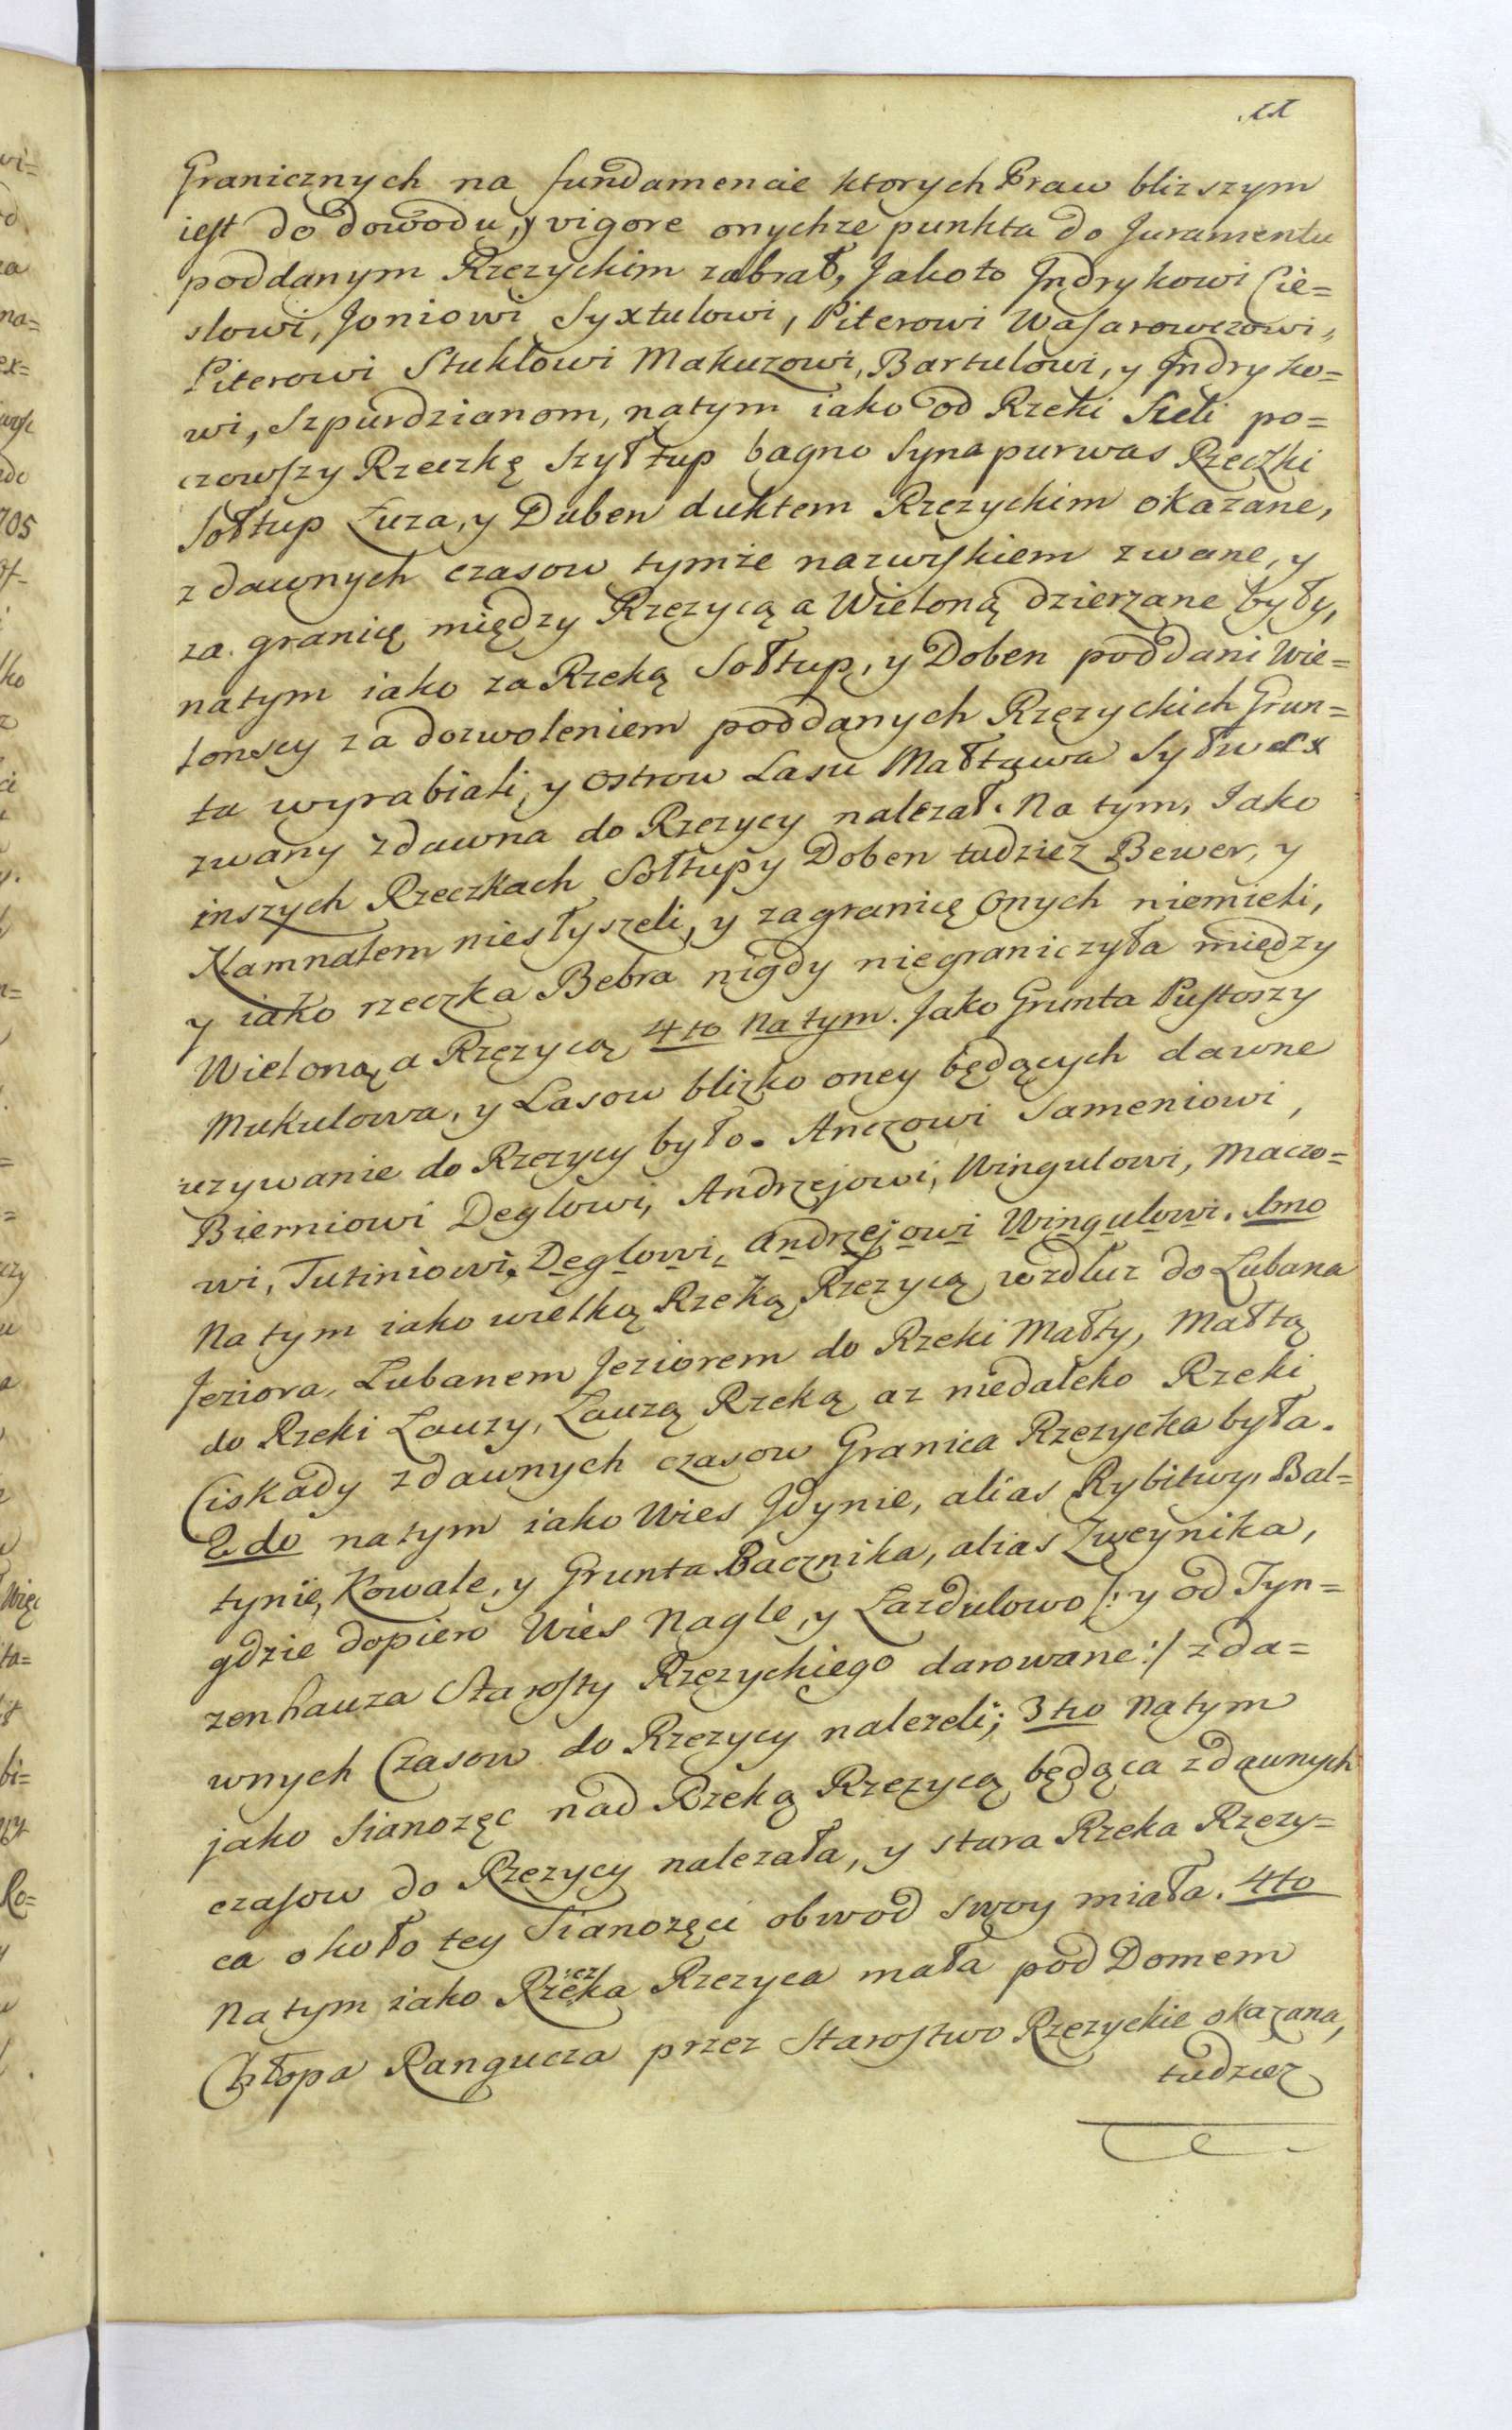 11
Granicznych na fundamencie ktorych Praw blizszym
iest do dowodu, y vigore onychze punkta do Juramentu
poddanym Rzezyckim zabrał, Jako to Jndrykowi Cie=
slowi, Joniowi Syxtulowi, Piterowi Wasarowczowi,
Piterowi Stuklowi Makuzowi, Bartulowi, y Jndryko=
wi, Szpurdzianom, natym iako od Rzeki Sieli po=
czowszy Rzeczkę Szyłtup bagno Synapurwas Rzeczki
Sołtup Zuza, y Duben duktem Rzezyckim okazane,
z dawnych czasow tymże nazwyskiem zwane, y
za granicę między Rzezycą a Wieloną dzierzane były,
natym iako za Rzeką Sołtup, y Doben poddani Wie=
lonscy za dozwoleniem poddanych Rzezyckich Grun=
ta wyrabiali, y Ostrow Lasu Małtawa Syłwex
zwany zdawna do Rzezycy nalezał. Na tym, Jako
inszych Rzeczkach Sołtupy Doben tudziez Bewer, y
Kamnalem niesłyszeli, y zagranicę Onych niemieli,
y iako rzeczka Bebra nigdy niegraniczyła między
Wieloną a Rzezycą 4to Na tym. Jako Grunta Pustoszy
Mukulowa, y Lasow blizko oney będących dawne
uzywanie do Rzezycy było. Anczowi Sameniowi,
Bierniowi Deglowi, Andrzejowi, Wingulowi, Maczo=
wi, Tutiniowi, Deglowi, Andrzejowi Wingulowi. 1mo
Na tym iako wielką Rzeką Rzezycą wzdłuz do Lubana
Jeziora, Lubanem Jeziorem do Rzeki Małty, Małtą
do Rzeki Lauzy, Lauzą Rzeką az niedaleko Rzeki
Ciskady zdawnych czasow Granica Rzezycka była.
2do natym iako Wies Jdynie, alias Rybitwy, Bal=
tynie, Kowale, y Grunta Bacznika, alias Zweynika,
gdzie dopiero Wies Nagle, y Lazdulowo /: y od Tyn=
zenhauza Starosty Rzezyckiego darowane :/ z da=
wnych Czasow do Rzezycy nalezeli; 3tio Na tym
jako Sianozęc nad Rzeką Rzezycą będąca zdawnych
czasow do Rzezycy nalezała, y stara Rzeka Rzezy=
ca około tey Sianozęci obwod swoy miała. 4to
Na tym iako Rzeczka Rzezyca mała pod Domem
Chłopa Rangucza przez Starostwo Rzezyckie okazana,
tudziez